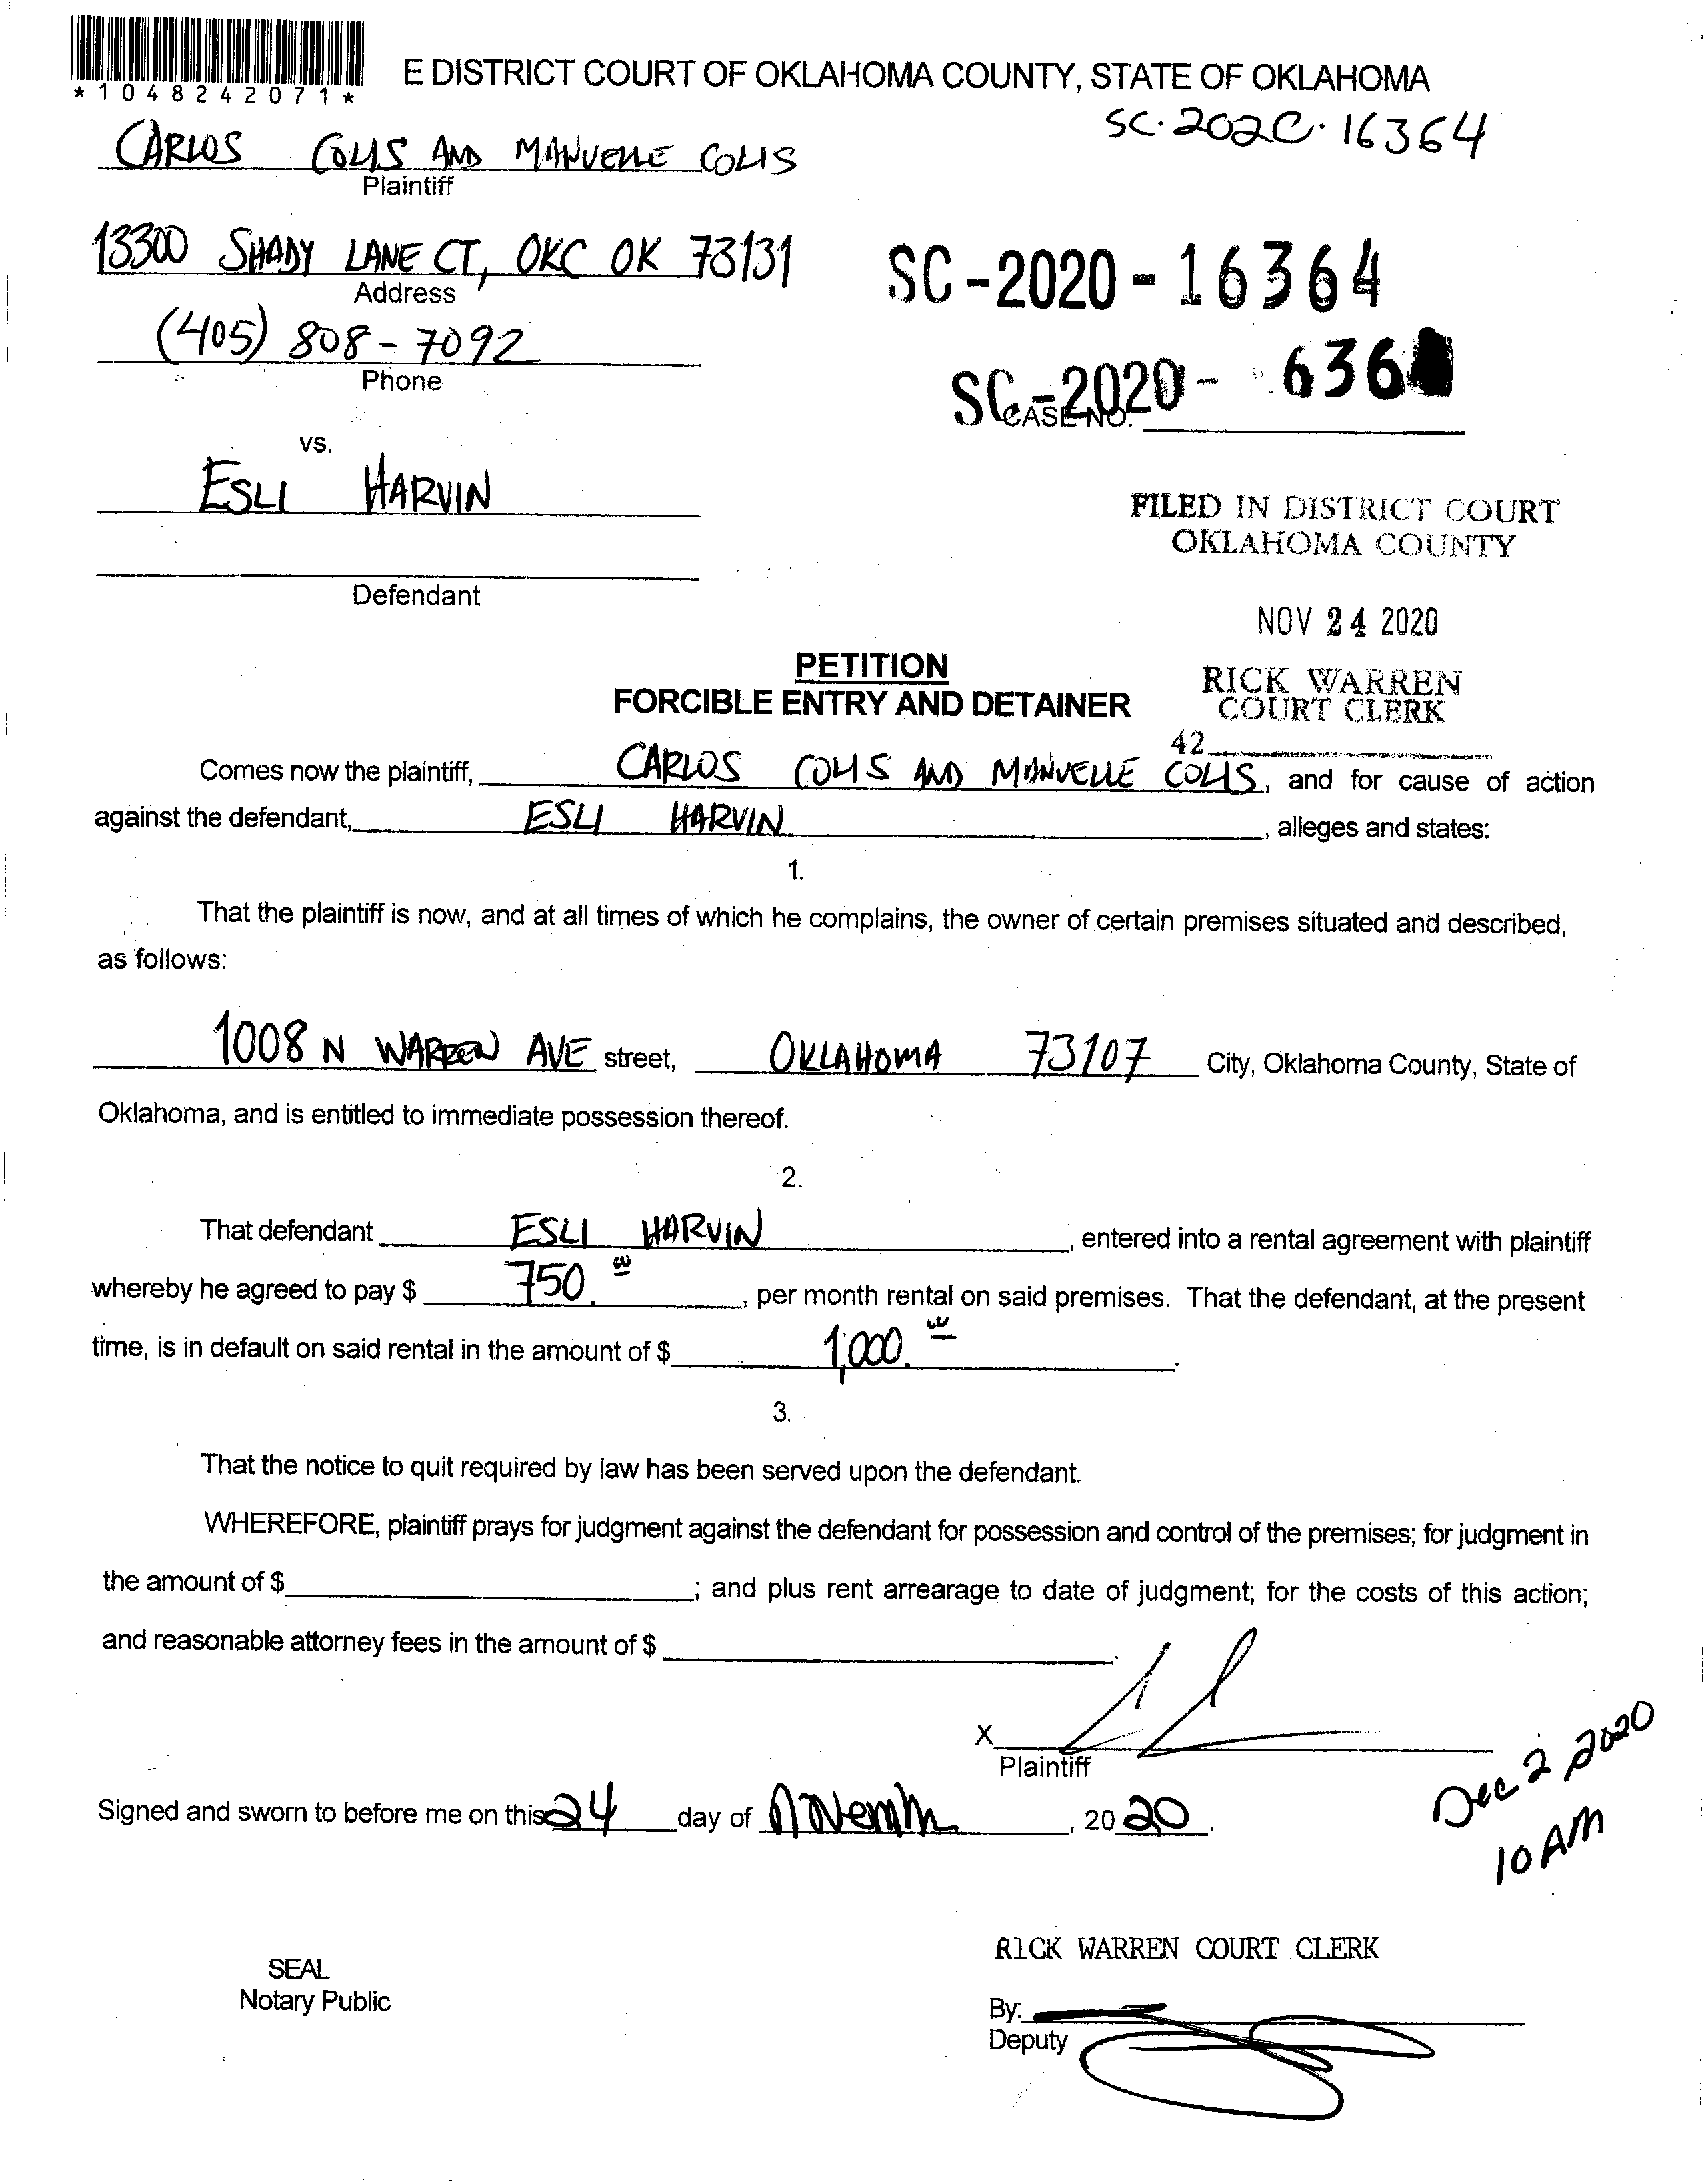 *1048242071*
E DISTRICT COURT OF OKLAHOMA COUNTY, STATE OF OKLAHOMA
SC-2020-16364
CARLOS COLIS AND MANUELLE COLIS
Plaintiff
13300 SHADY LANE CT, OKC OK 73131
Address
SC-2020-16364
(405) 808-7092
Phone
SC-2020- 636
CASE NO.
vs.
ESLI HARVIN
FILED IN DISTRICT COURT
OKLAHOMA COUNTY
Defendant
NOV 24 2020
PETITION
RICK WARREN
FORCIBLE ENTRY AND DETAINER
COURT CLERK
42
Comes now the plaintiff, CARLOS COLIS AND MANUELLE COLIS, and for cause of action
against the defendant, ESLI HARVIN, alleges and states:
1.
That the plaintiff is now, and at all times of which he complains, the owner of certain premises situated and described,
as follows:
1008 N WARREN AVE street, OKLAHOMA 73107 City, Oklahoma County, State of
Oklahoma, and is entitled to immediate possession thereof.
2.
That defendant ESLI HARVIN, entered into a rental agreement with plaintiff
whereby he agreed to pay $ 750., per month rental on said premises. That the defendant, at the present
time, is in default on said rental in the amount of $ 1,000.
3.
That the notice to quit required by law has been served upon the defendant.
WHEREFORE, plaintiff prays for judgment against the defendant for possession and control of the premises; for judgment in
the amount of $; and plus rent arrearage to date of judgment; for the costs of this action;
and reasonable attorney fees in the amount of $.
X
Plaintiff
Dec 2 2020
10 AM
Signed and sworn to before me on this 24 day of November, 2020.
RICK WARREN COURT CLERK
SEAL
Notary Public
By:
Deputy